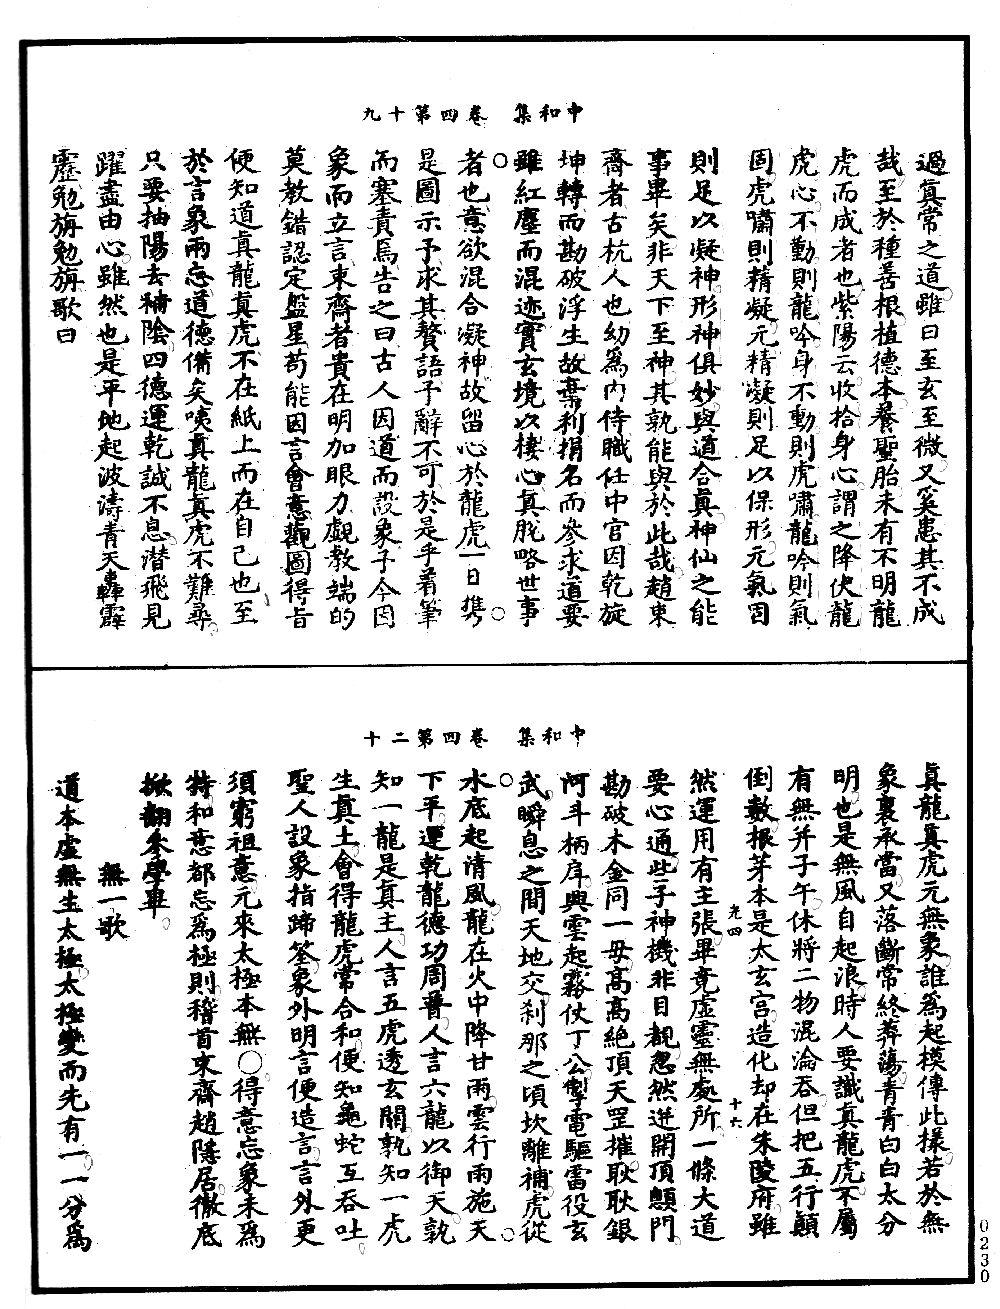 中和集　卷四第十九
過眞常之道雖曰至玄至微又奚患其不成
哉至於種善根植德本養聖胎未有不明龍
虎而成者也紫陽云收拾身心謂之降伏龍
虎心不動則龍吟身不動則虎嘯龍吟則氣
固虎嘯則精凝元精凝則足以保形元氣固
則足以凝神形神俱妙與道合眞神仙之能
事畢矣非天下至神其孰能與於此哉趙東
齋者古杭人也幼爲內侍職任中官因乾旋
坤轉而勘破浮生故棄利捐名而參求道要
雖紅塵而混迹實玄境以棲心眞脫略世事
者也意欲混合凝神故留心於龍虎一日携
是圖示予求其贅語予辭不可於是乎着筆
而塞責焉告之曰古人因道而設象子今因
象而立言東齋者貴在明加眼力覷教端的
莫教錯認定盤星苟能因言會意觀圖得旨
便知道眞龍眞虎不在紙上而在自己也至
於言象兩忘道德備矣咦眞龍眞虎不難尋
只要抽陽去補陰四德運乾誠不息潛飛見
躍盡由心雖然也是平地起波濤青天轟霹
靂勉旃勉旃歌曰
中和集　卷四第二十
眞龍眞虎元無象誰爲起模傳此樣若於無
象裏承當又落斷常終莽蕩青青白白太分
明也是無風自起浪時人要識眞龍虎不屬
有無幷子午休將二物混淪吞但把五行顛
倒數根芽本是太玄宮造化却在朱陵府雖
光四　十六
然運用有主張畢竟虛靈無處所一條大道
要心通些子神機非目覩忽然迸開頂顖門
勘破木金同一母高高絕頂天罡摧耿耿銀
河斗柄戽興雲起霧仗丁公掣電驅雷役玄
武瞬息之間天地交刹那之頃坎離補虎從
水底起清風龍在火中降甘雨雲行雨施天
下平運乾龍德功周普人言六龍以御天孰
知一龍是眞主人言五虎透玄關孰知一虎
生眞土會得龍虎常合和便知龜蛇互吞吐
聖人設象指蹄筌象外明言便造言言外更
須窮祖意元來太極本無○得意忘象未爲
特和意都忘爲極則稽首東齋趙隱居徹底
掀翻參學畢
無一歌
道本虛無生太極太極變而先有一一分爲
0230